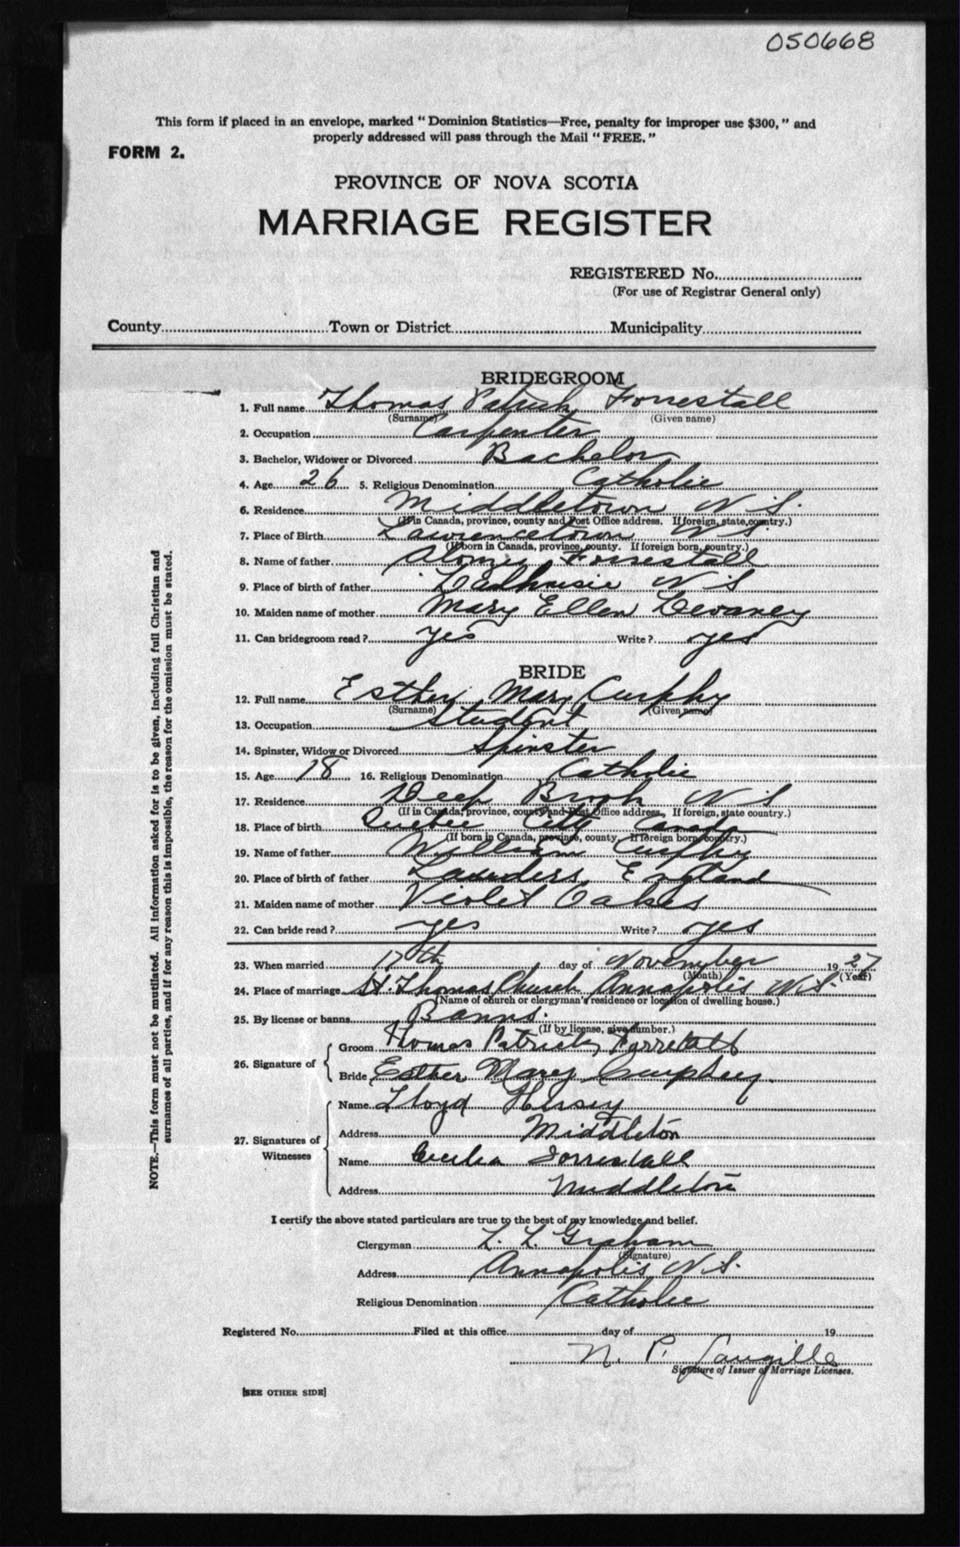 050668
This form if placed in an envelope, marked "Dominion Statistics—Free, penalty for improper use $300," and
properly addressed will pass through the Mail "FREE."
FORM 2.
PROVINCE OF NOVA SCOTIA
MARRIAGE REGISTER
REGISTERED No.
(For use of Registrar General only)
County Town or District Municipality
BRIDEGROOM
1. Full name Thomas Patrick Forrestall
(Surname) (Given name)
2. Occupation Carpenter
3. Bachelor, Widower or Divorced Bachelor
4. Age 26 5. Religious Denomination Catholic
6. Residence Middletown N S.
(If in Canada, province, county and Post Office address. If foreign, state, country.)
7. Place of Birth Lawrencetown N S.
(If born in Canada, province, county. If foreign born, country.)
8. Name of father Forrestall
9. Place of birth of father Dalhousie N S
10. Maiden name of mother Mary Ellen Devaney
11. Can bridegroom read? yes Write? yes
BRIDE
12. Full name Esther Mary Curphy
(Surname) (Given name)
13. Occupation Student
14. Spinster, Widow or Divorced Spinster
15. Age 18 16. Religious Denomination Catholic
17. Residence Deep Brook N S
(If in Canada, province, county and Post Office address. If foreign, state country.)
18. Place of birth Quebec City Canada
(If born in Canada, province, county. If foreign born, country.)
19. Name of father William Curphy
20. Place of birth of father England
21. Maiden name of mother Violet Oakes
22. Can bride read? yes Write? yes
23. When married 17th day of November 1927
(Month) (Year)
24. Place of marriage St. Thomas Church Annapolis N.S.
(Name of church or clergyman's residence or location of dwelling house.)
25. By license or banns Banns.
(If by license, give number.)
26. Signature of Groom Thomas Patrick Forrestall
Bride Esther Mary Curphey.
27. Signatures of Witnesses Name Lloyd Hersey
Address Middleton
Name Cecilia Forrestall
Address Middleton
I certify the above stated particulars are true to the best of my knowledge and belief.
Clergyman L. L. Graham
(Signature)
Address Annapolis N.S.
Religious Denomination Catholic
Registered No. Filed at this office day of 19
N. P. Langille
Signature of Issuer of Marriage Licenses.
[SEE OTHER SIDE]
NOTE.—This form must not be mutilated. All information asked for is to be given, including full Christian and
surnames of all parties, and if for any reason this is impossible, the reason for the omission must be stated.